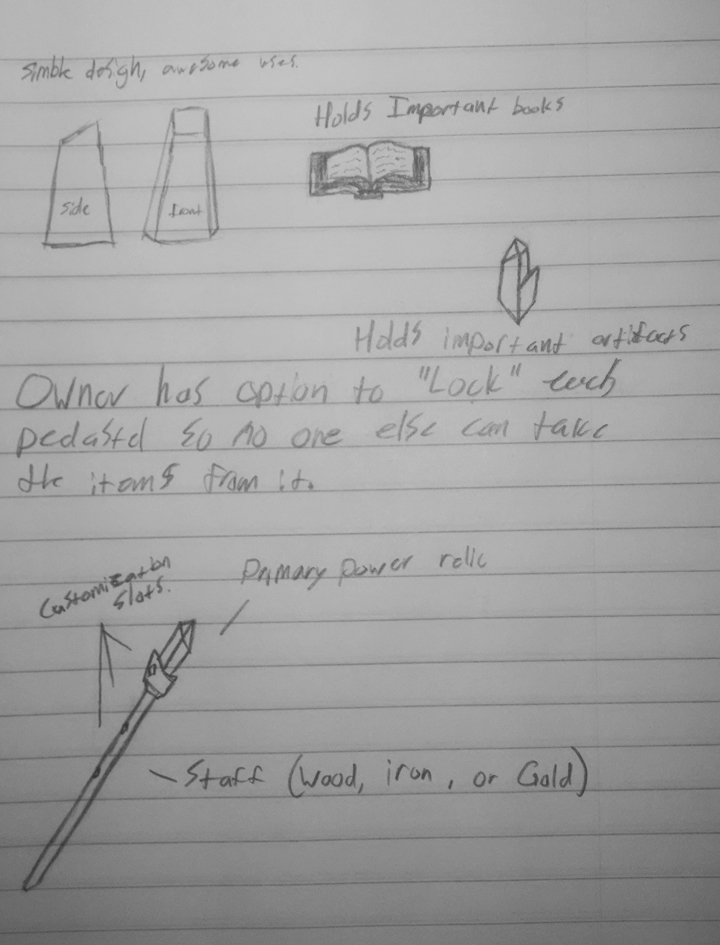 simble design, awesome uses.
Holds Important books
side
front
Holds important artifacts
Owner has option to "Lock" each
pedastal so no one else can take
the items from it.
Customization
slots.
Primary power relic
Staff (Wood, iron, or Gold)